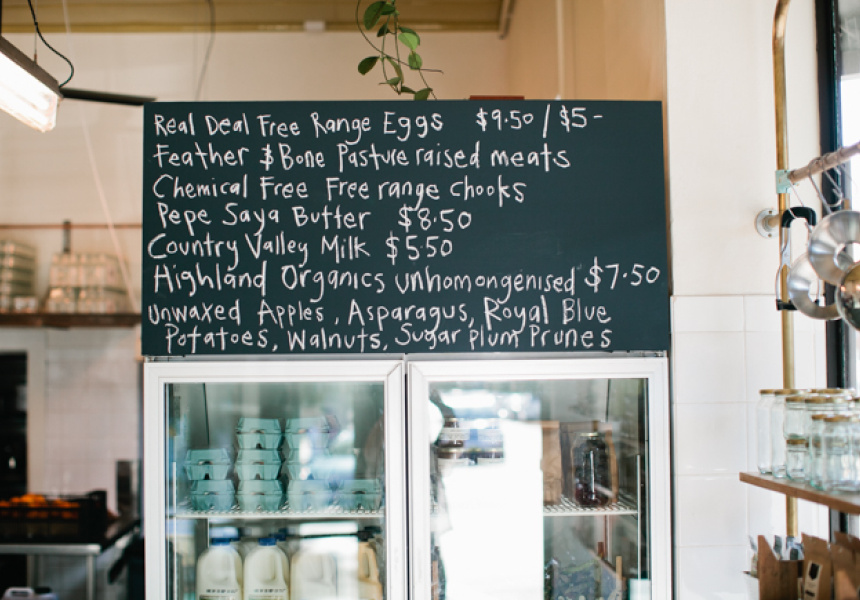 Real Deal Free Range Eggs $9.50 / $5-
Feather & Bone Pasture raised meats
Chemical Free Free range chooks
Pepe Saya Butter $8.50
Country Valley Milk $5.50
Highland Organics unhomongenised $7.50
unwaxed Apples, Asparagus, Royal Blue
Potatoes, Walnuts, Sugar plum Prunes